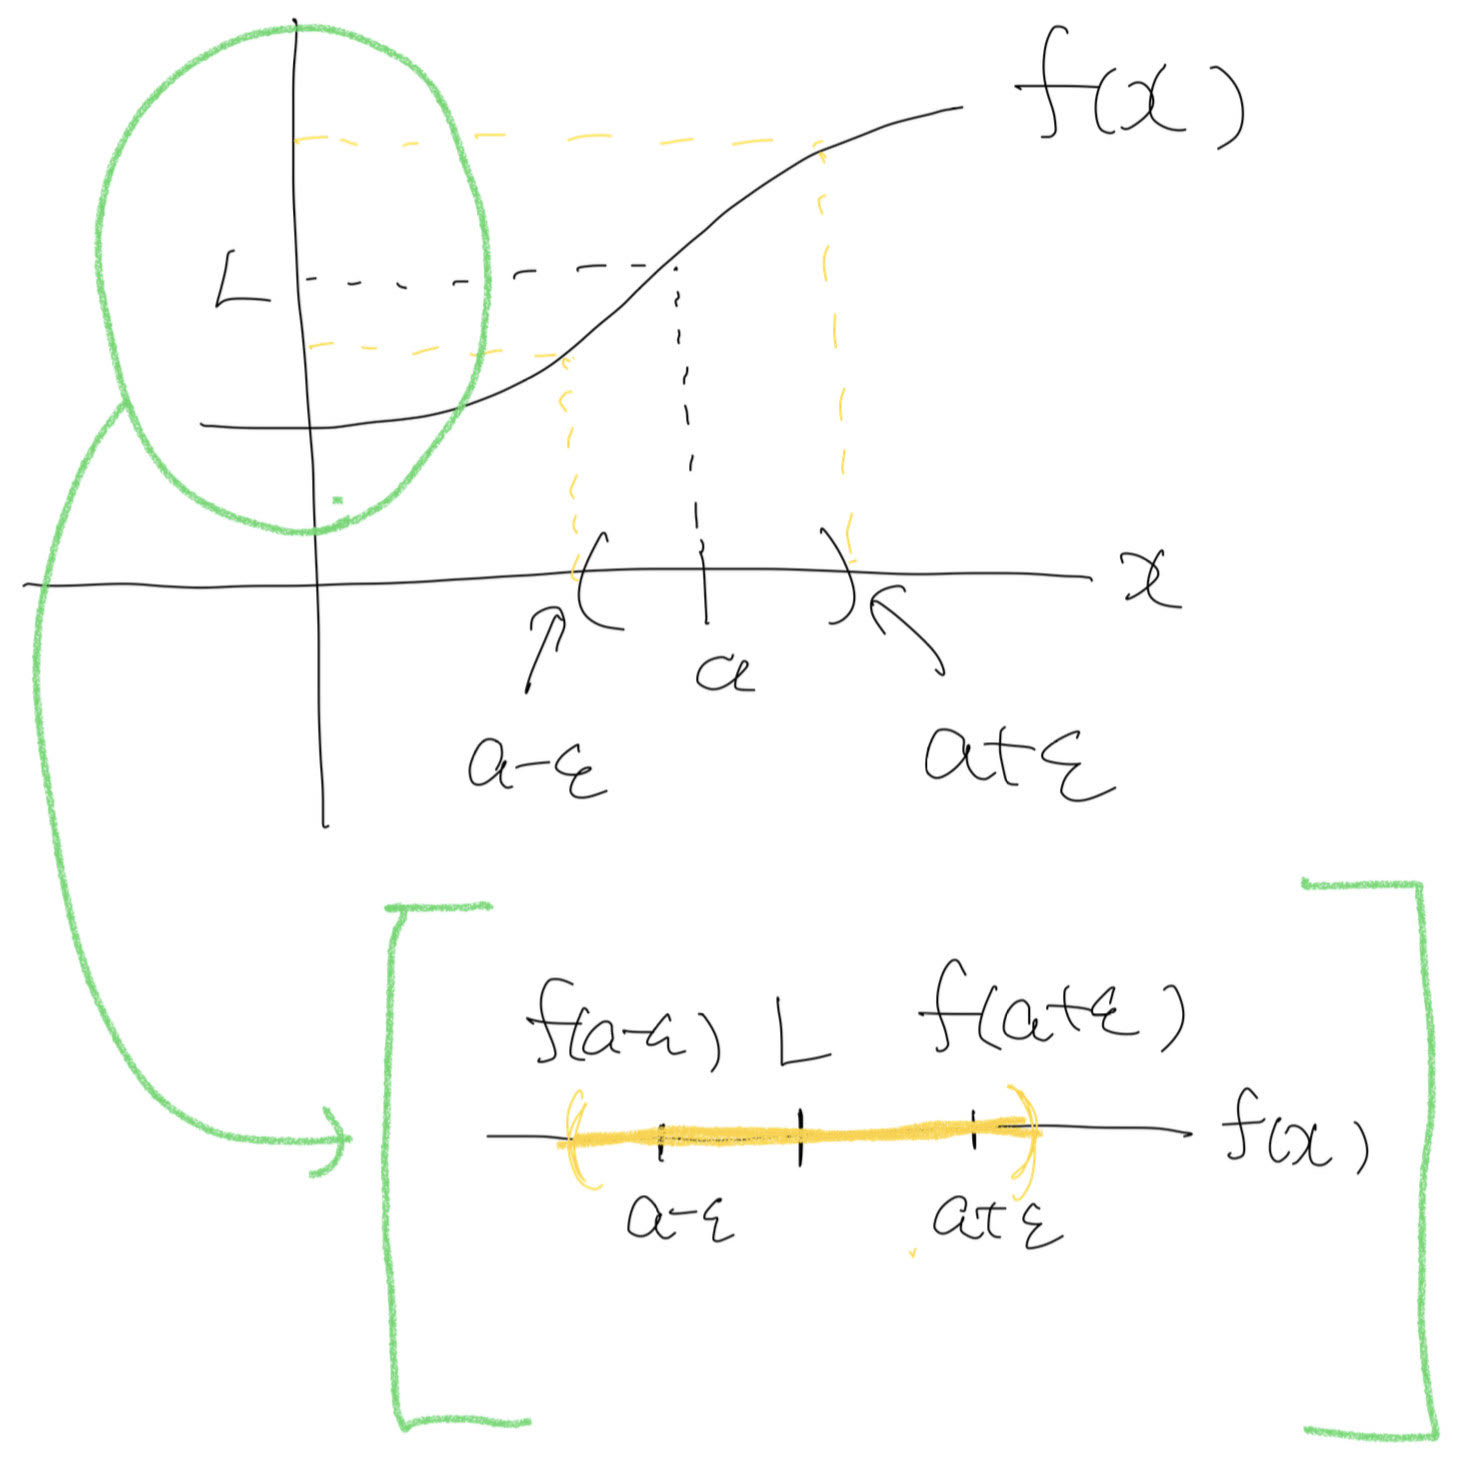 f(x)
L
x
a
a-ε a+ε
f(a-ε) L f(a+ε)
f(x)
a-ε a+ε